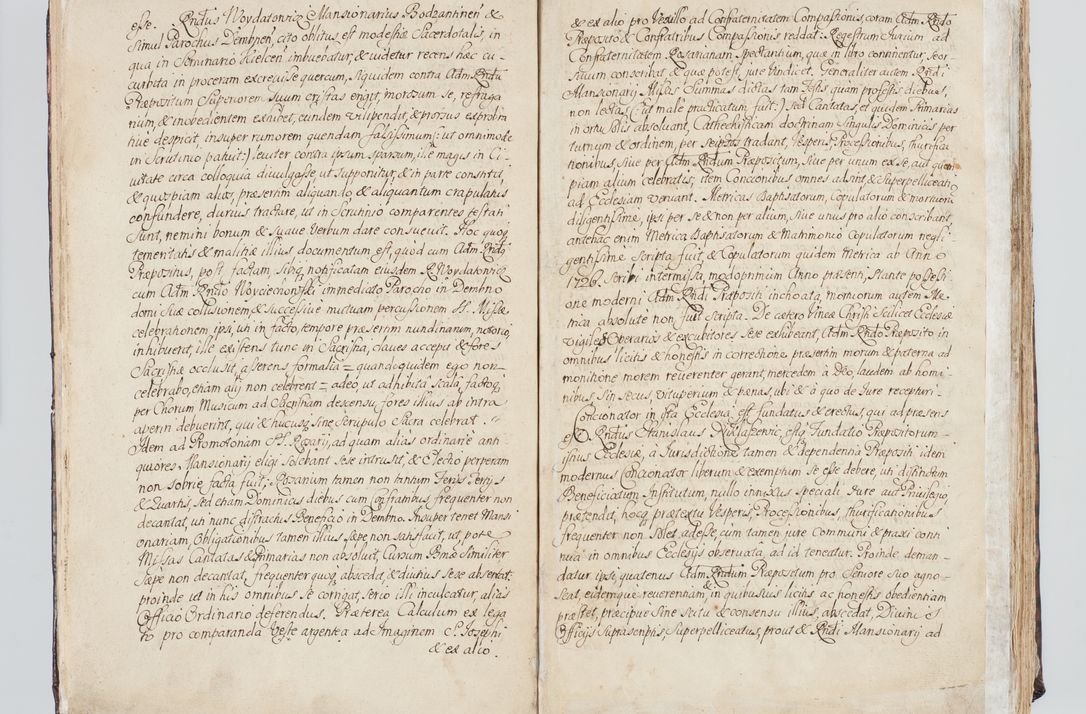 esse. Rndus Woydatowicz Mansionarius Bodzantinen &
simul Parochus Dembnen, cito oblitus est modestiæ Sacerdotalis, in
qua in Seminario Kielcen imbuebatur, & videtur recens hæc cu-
curbita in proceram excrevisse quercum, siquidem contra Adm Rndū
Præpositum Superiorem suum cristas erigit, morosum se, refraga
rium, & inobedientem exhibet, eundem vilipendit, & prorsus exprobra
tive despicit, insuper rumorem quendam falsissimum (: ut omnimode
in Scrutinio patuit :) leviter contra ipsum sparsum, ille magis in Ci-
vitate circa colloquia divulgasse, ut supponitur, & in parte constitit,
& quospiam alios, præsertim aliquando & aliquantum crapulatus
confundere, durius tractare, ut in Scrutinio comparentes testati
sunt, nemini bonum & suave verbum dare consuevit. Hoc quoq
temeritatis & malitiæ illius documentum est, quod cum Adm Rndq
Præpositus, post factam, sibiq notificatam eiusdem R Woydatowicz
cum Adm Rndo Woyciechowski immediato Parocho in Dembno
domi suæ colusionem, & successive mutuam percussionem SS. Missæ
celebrationem ipsi, uti in facto, tempore præsertim nundinarum, notorio,
inhibuerit, ille existens tunc in Sacristia, claves accepit & fores
Sacristiæ occlusit, asserens formalia = quandoquidem ego non-
celebrabo, etiam alij non celebrent = adeo, ut adhibita scala, factoq,
per Chorum Musicum ad Sacristiam descensu, fores illius ab intra
aperiri debuerint, qui & hucusq sine scrupulo Sacra celebrat.
Idem ad Promotoriam SS. Rosarij, ad quam alias ordinarie anti
quiores Mansionarij eligi solebant sese intrusit, & Electio perperam
non sobrie facta fuit; Rozarium tamen non tantum Ferijs Tertijs
& Quartis, sed etiam Dominicis diebus cum Confratribus frequenter non
decantat, uti nunc distractus Beneficio in Dembno. Insuper tenet Mansi
onariam, Obligationibus tamen illius sæpe non satisfacit, ut, pote
Missas Cantatas & Primarias non absolvit, Cursum Bmæ similiter
sæpe non decantat, frequenter quoq abscedit, & diutius sese absentat.
proinde ut in his omnibus se corrigat, serio illi inculcatur, alias
Officio Ordinario deferendus. Præterea Calculum ex lega
to pro comparanda Veste argentea ad Imaginem S. Josephi
& ex alio
& ex alio pro Vexillo ad Confraternitatem Compassionis, coram Adm Rndo
Præposito & Confratribus Compassionis reddat. Regestrum Avarium ad
Confraternitatem Rosarianam spectantium, quæ in libro continentur, seor-
sivum conscribat, & quæ potest, jure vindicet. Generaliter autem Rndi
Mansionarij Missas Summas dictas tam Festis quam profestis diebus,
non lectas, (: sit male practicatum fuit :) sed Cantatas, et quidem Primarias
in ortu Solis absolvant, Cathechisticam doctrinam singulis Dominicis per
turnum & ordinem, per seipsos tradant, Vesperis, Processionibus, thurifica
tionibus, sive per Adm Rndum Præpositum, sive per unum ex se, aut quem
piam alium celebratis, item Concionibus omnes adsint, & Superpelliceati
ad Ecclesiam veniant. Metricas Baptisatorum, Copulatorum & mortuorū
diligentissime, ipsi per se & non per alium, sive unus pro alio conscribant,
antehac enim Metrica Baptisatorum & Matrimonio Copulatorum negli-
gentissime scripta fuit, & Copulatorum quidem Metrica ab Anno
1726. scribi intermissa, modoprimum Anno præsenti, stante possessi
one moderni Adm Rndi Præpositi inchoata, mortuorum autem Me-
trica absolute non fuit scripta. De cætero Vineæ Christi scilicet Ecclesiæ
vigiles Operarios & excubitores sese exhibeant, Adm Rndo Præposito in
omnibus licitis & honestis in correctione præsertim morum & paterna ad
monitione morem reverenter gerant, mercedem a Deo, laudem ab homi
nibus, sin secus, Vituperium & Pœnas, ubi & a quo de jure recepturi.
Concionator in ista Ecclesia est fundatus & erectus, qui ad præsens
est Rndus Stanislaus estq Fundatio Præpositorum
istius Ecclesiæ, a Jurisdictione tamen & dependentia Præpositi idem
modernus Concionator liberum & exemptum se esse debere, uti distinctum
Beneficiatum Institutum, nullo innixus speciali Jure aut Privilegio,
prætendit, hocq prætextu Vesperis, Processionibus, thurificationibus
frequenter non soles adesse, cum tamen jure communi & praxi conti
nua in omnibus Ecclesijs observata, ad id teneatur. Proinde deman-
datur ipsi, quatenus Adm Rndum Præpositum pro Seniore suo agno-
scat, eidemque reverentiam, & in quibusvis licitis ac honestis obedientiam
præstet, præcipue sine scitu & consensu illius, abscedat, Divinis
Officijs suprascriptis, superpelliceatus, prout & Rndi Mansionarij ad